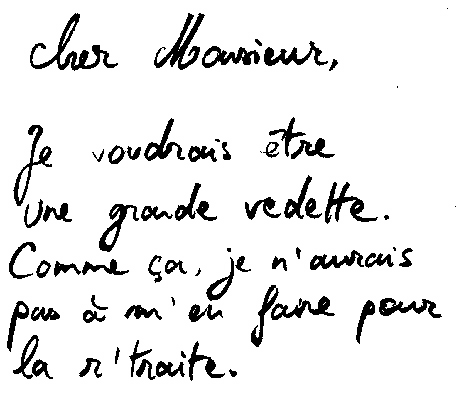 Cher Monsieur,
Je voudrais être
une grande vedette.
Comme ça, je n'aurais
pas à m'en faire pour
la r'traite.